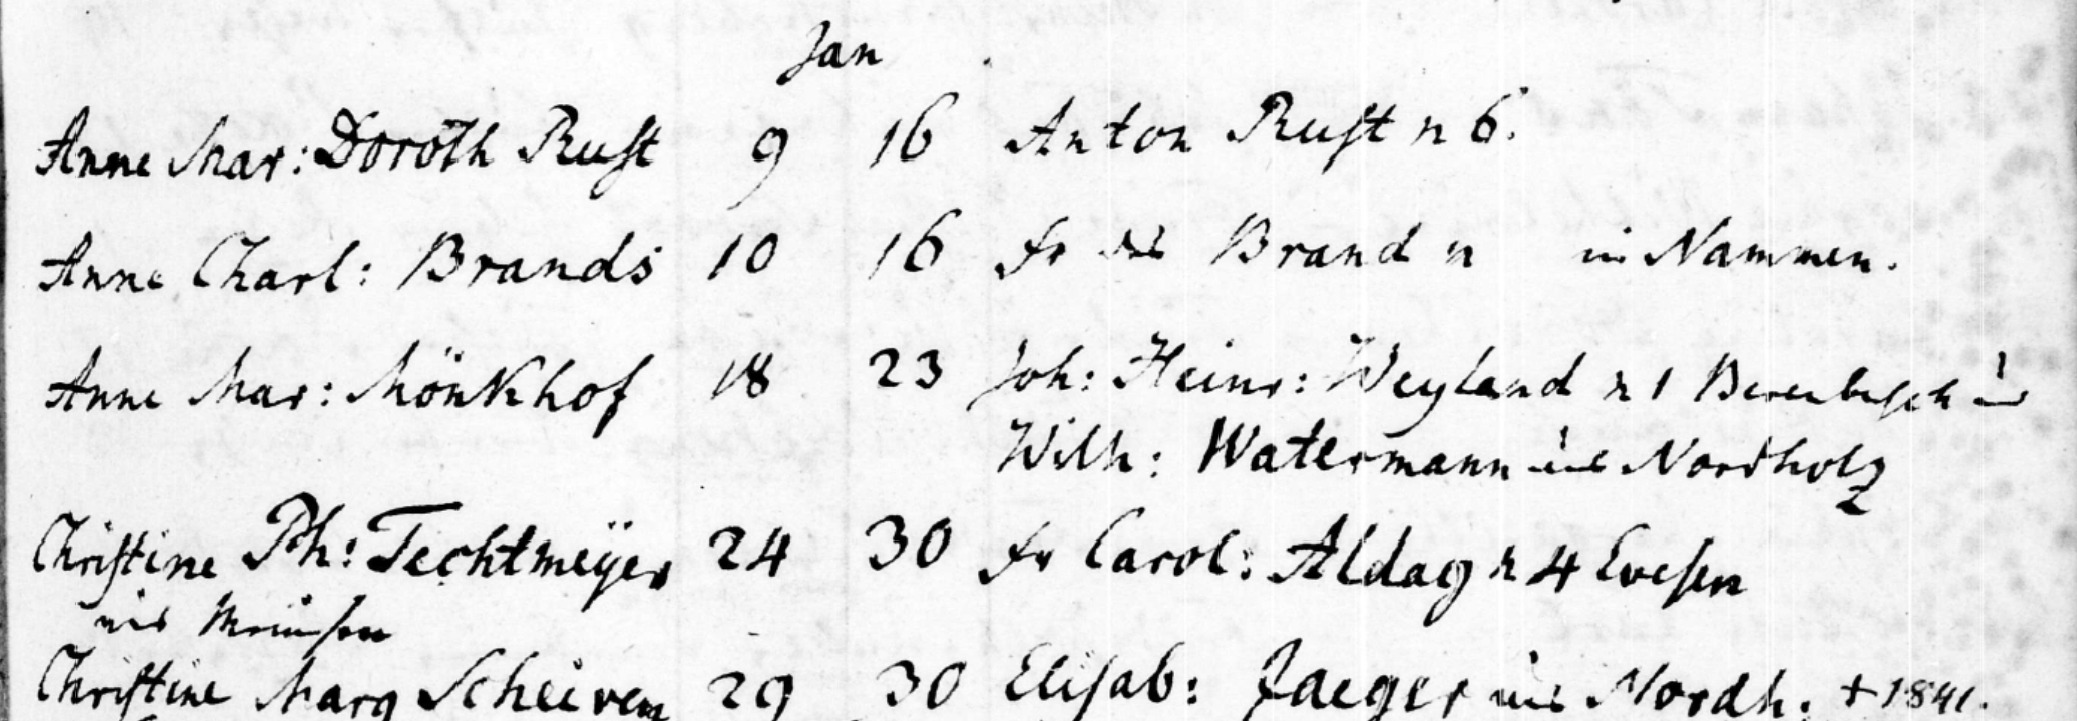 Jan
Anne Mar: Doroth Rust 9 16 Anton Rust n 6.
Anne Charl: Brands 10 16 Fr Brand n in Nammen.
Anne Mar: Mönkhof 18 23 Joh: Heinr: Weyland n 1 Berenbusch
Wilh: Watermann aus Nordholz
Christine Ph: Techtmeÿer 24 30 Fr Carol: Aldag n 4 Evesen
aus
Christine Marg 29 30 Elisab: Jaeger aus Nordh. + 1841.